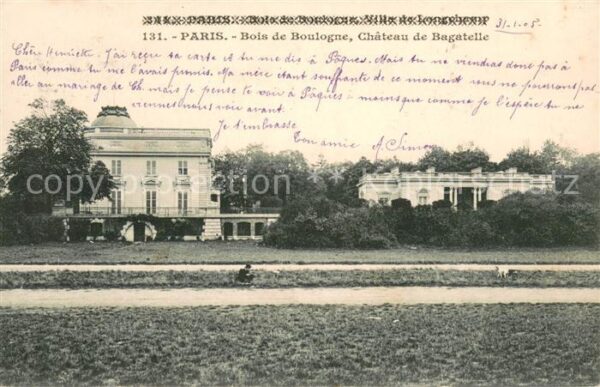 311. PARIS. - Bois de Boulogne, Ville de Longchamp
31-1-05
131. - PARIS. - Bois de Boulogne, Château de Bagatelle
Chère Henriette. J'ai reçu ta carte et tu me dis à Pâques. Mais tu ne viendras dont pas à
Paris comme tu me l'avais promis. Ma mère étant souffrante de ce moment nous ne pourrons pas
aller au mariage de Ch. mais je pense te voir à Pâques - moins que comme je l'espère tu ne
viennes nous voir avant.
Je t'embrasse
Ton amie A. Simon
copyright